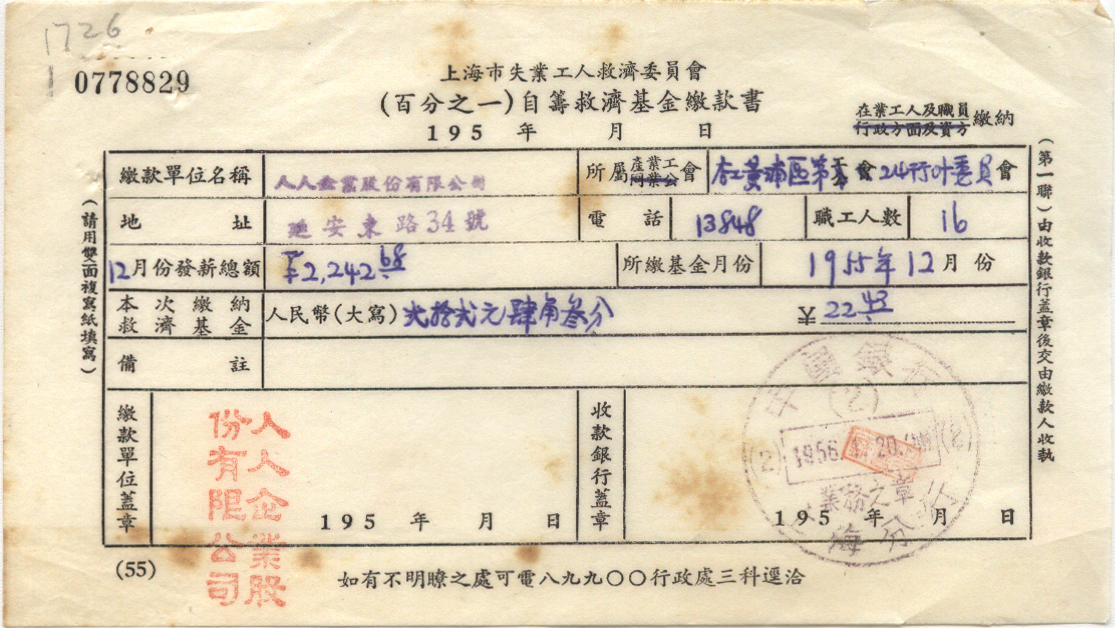 1726
0778829
上海市失業工人救濟委員會
(百分之一)自籌救濟基金繳款書
195 年 月 日
在業工人及職員
行政方面及資方
繳納
繳款單位名稱 人人企業股份有限公司 所屬產業工會
同業公
黃浦區第 會24行业委員會
地 址 延安東路34號 電 話 13848 職工人數 16
12月份發薪總額 ¥2,242.68 所繳基金月份 1955年12月份
本次繳納
救濟基金
人民幣(大寫) 弍拾弍元肆角叁分 ¥22.43
備 註
繳款單位蓋章
人人企業股
份有限公司
195 年 月 日
收款銀行蓋章
中國銀行
(乙)
(2) 1956. 1. 20. (2)
業務之章
上海分行
195 年 月 日
(請用雙面複寫紙填寫)
(第一聯)由收款銀行蓋章後交由繳款人收執
(55)
如有不明瞭之處可電八九九〇〇行政處三科逕洽